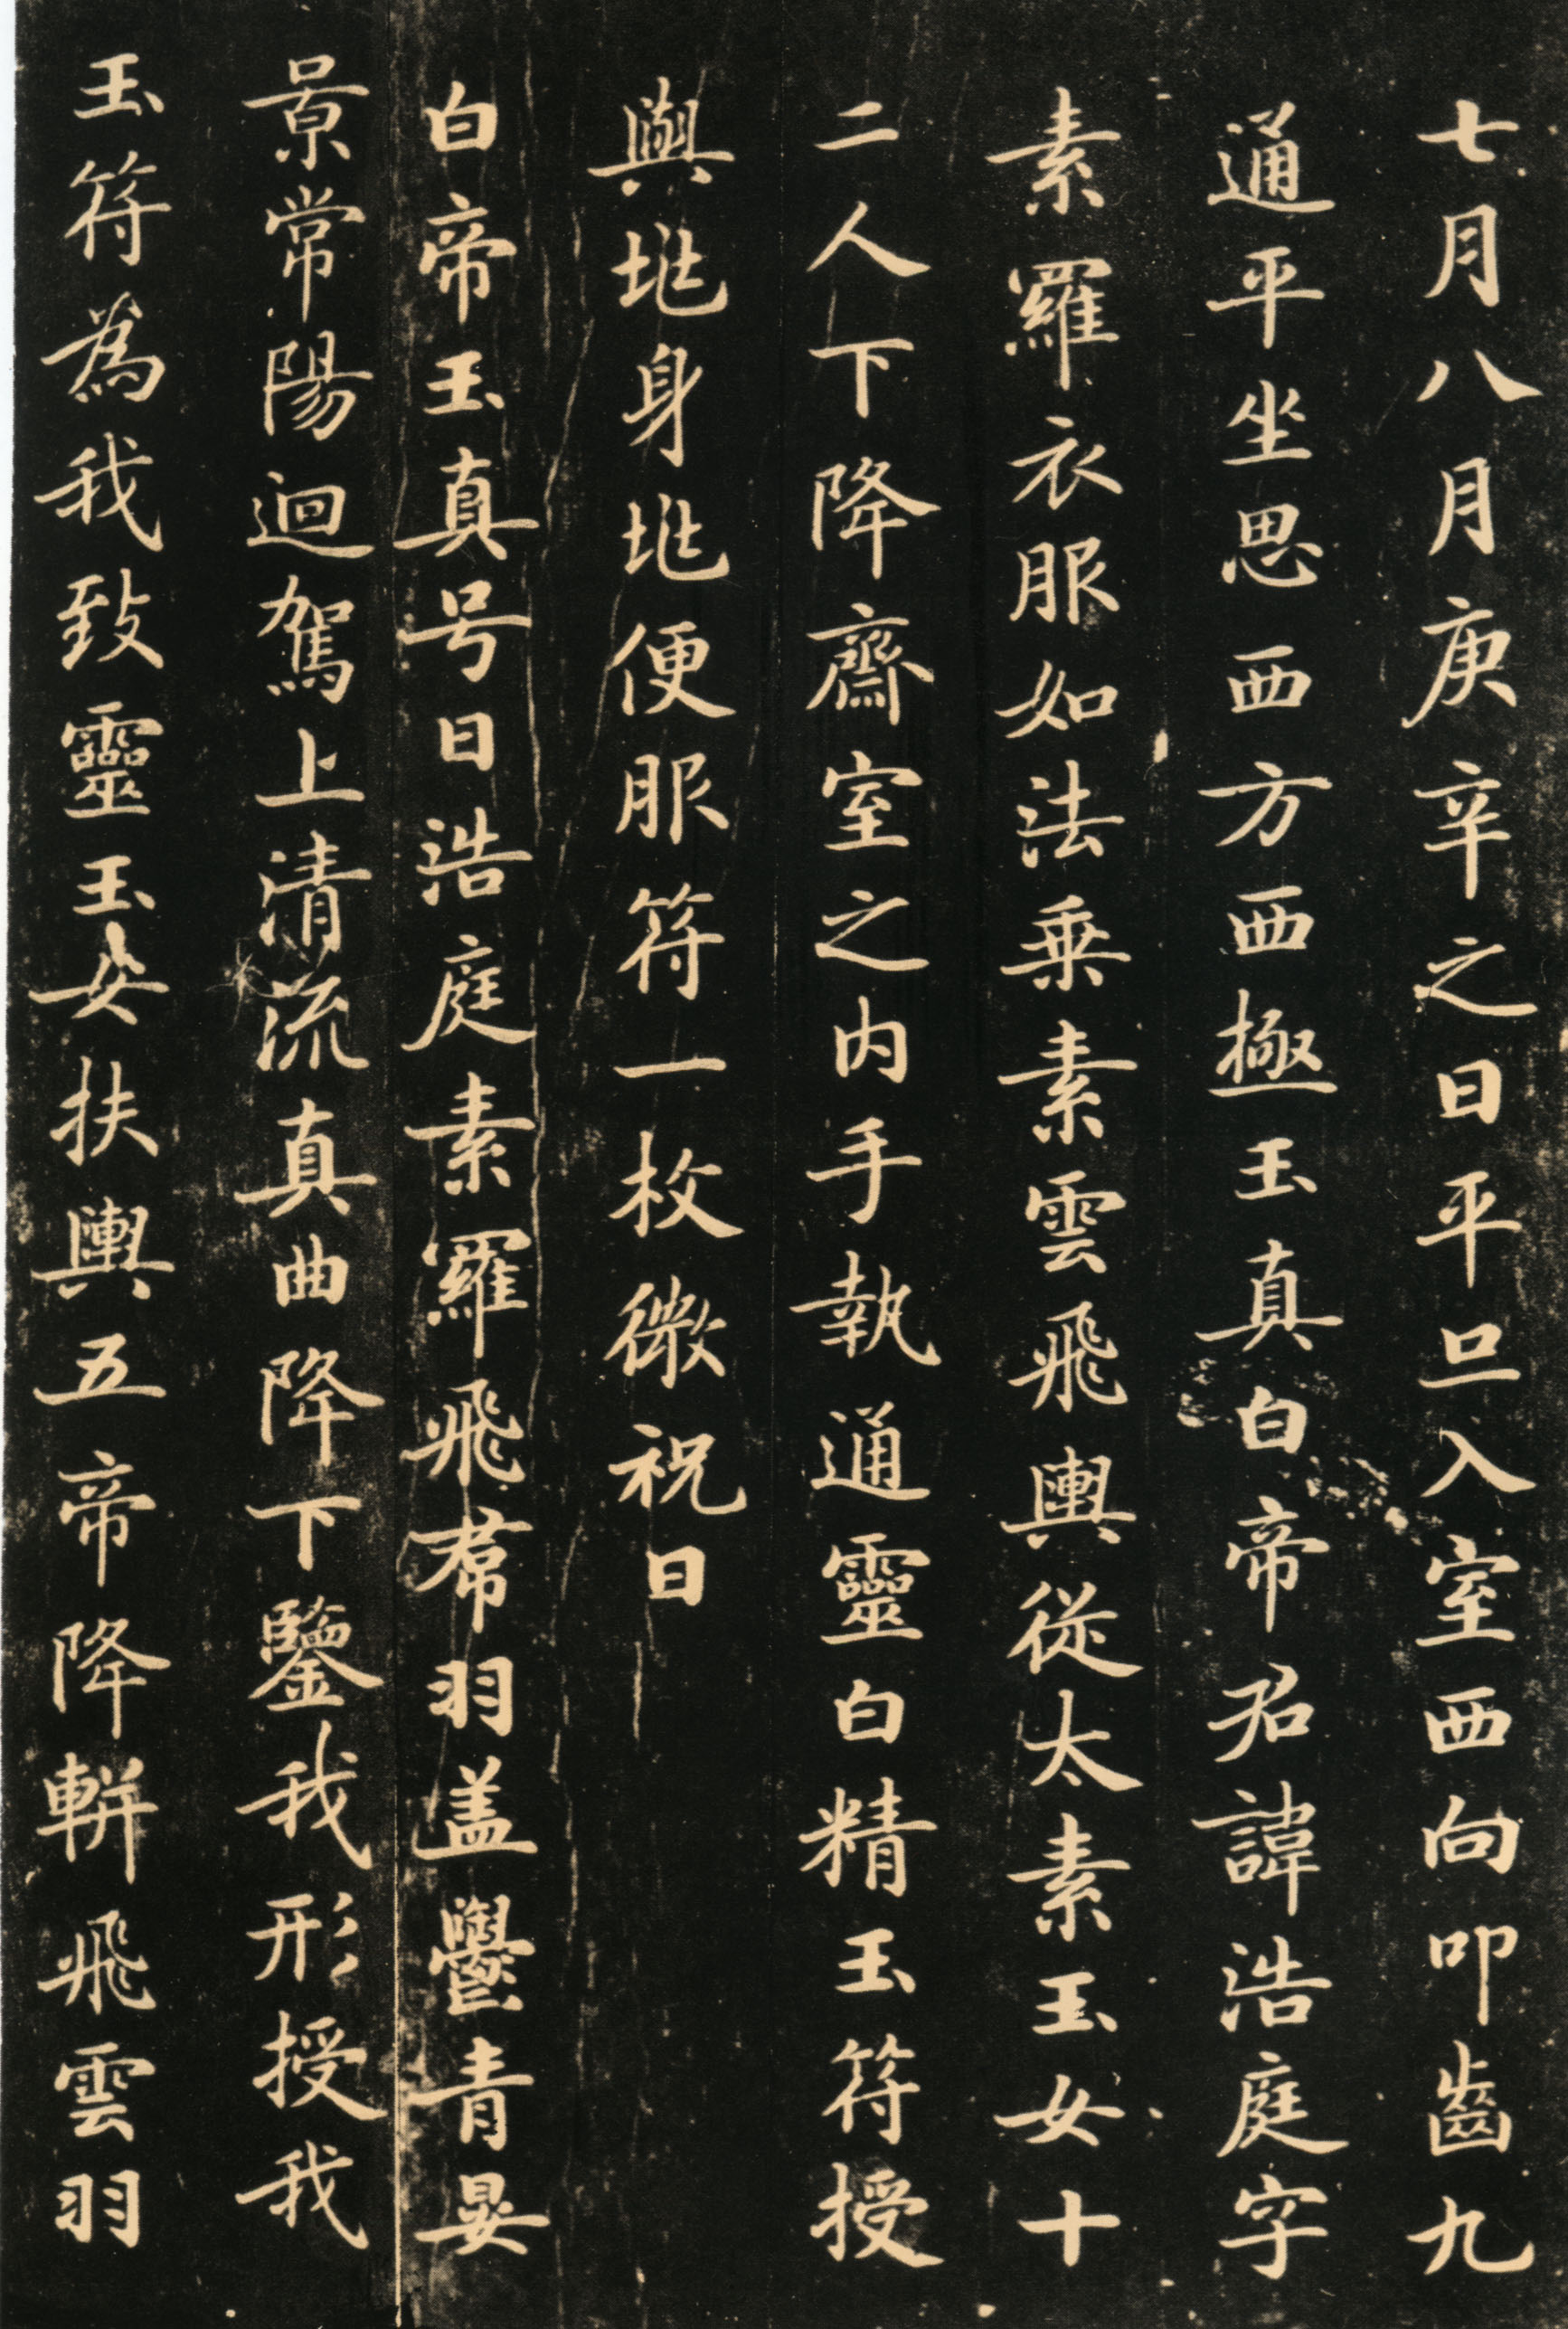 七月八月庚辛之日平旦入室西向叩齒九
通平坐思西方西極玉真白帝君諱浩庭字
素羅衣服如法乗素雲飛輿從太素玉女十
二人下降齋室之内手執通靈白精玉符授
與兆身兆便服符一枚微祝曰
白帝玉真号曰浩庭素羅飛帬羽盖鬱青晏
景常陽迴駕上清流真曲降下鑒我形授我
玉符為我致靈玉女扶輿五帝降軿飛雲羽